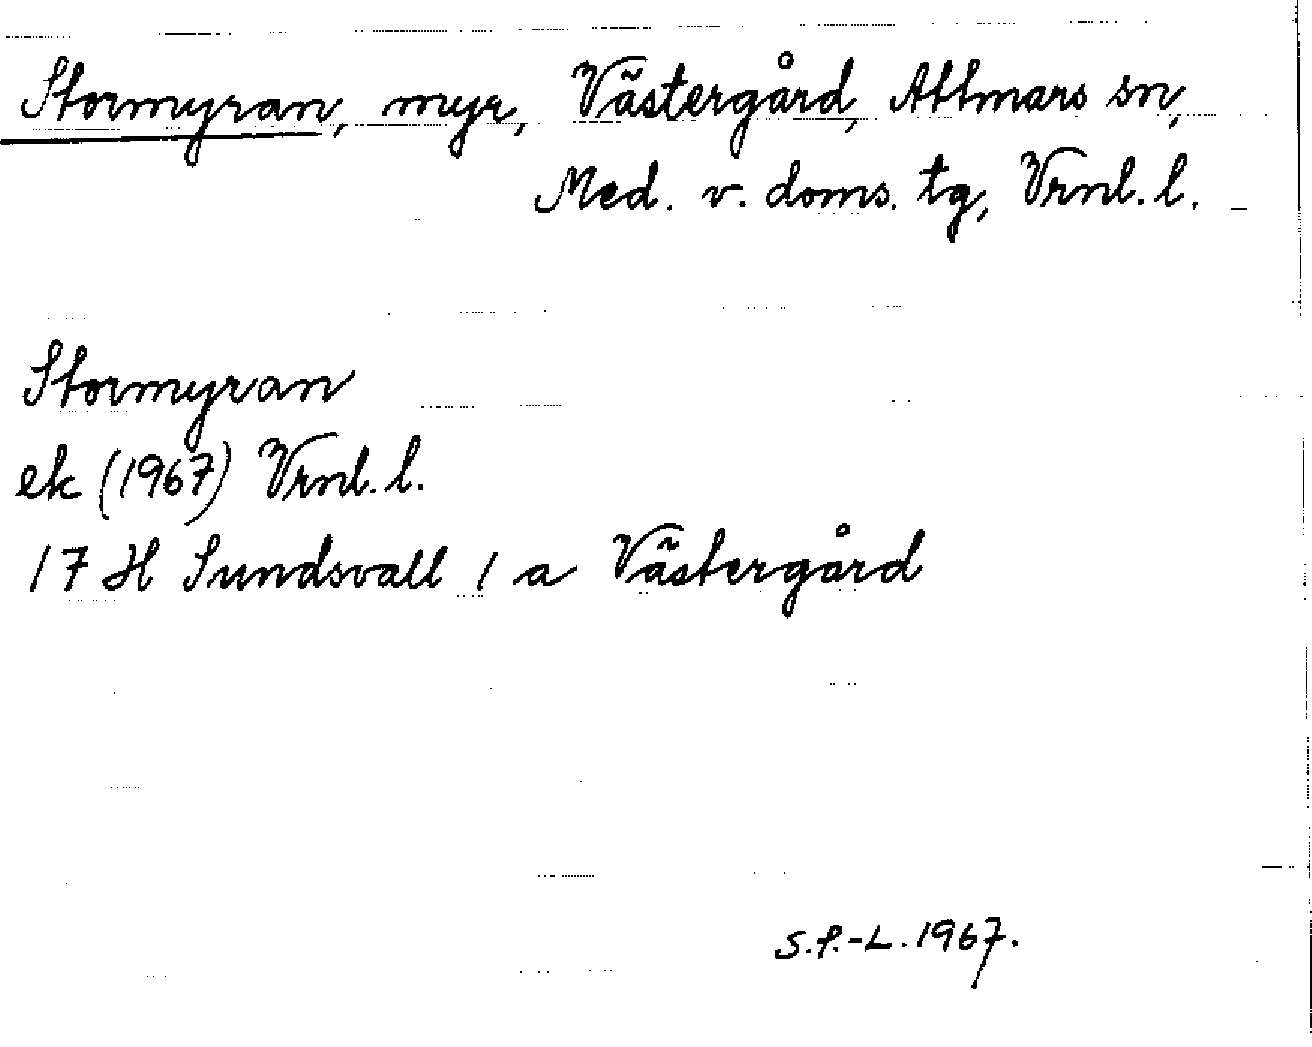 Stormyran, myr, Västergård, Attmars sn,
Med. v. doms. tg, Vrnl. l.
Stormyran
ek (1967) Vrnl. l.
17 H Sundsvall 1 a Västergård
S.P.-L. 1967.